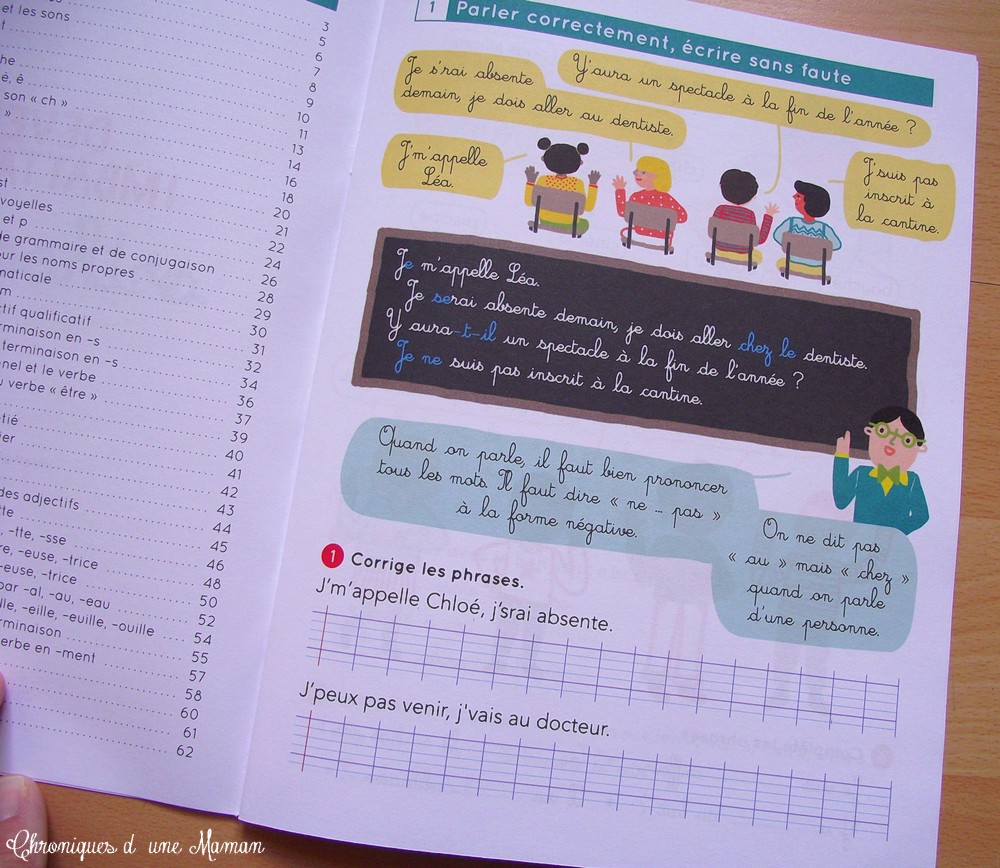 et les sons
3
5
6
7
è, ê
8
9
son « ch »
10
11
13
14
16
18
20
voyelles
21
et p
22
de grammaire et de conjugaison
24
les noms propres
26
28
29
30
qualificatif
31
en -s
32
terminaison en -s
34
et le verbe
36
verbe « être »
37
39
40
41
42
43
des adjectifs
44
45
, -tte, -sse
46
, -euse, -trice
48
-euse, -trice
50
par -al, -au, -eau
52
, -eille, -euille, -ouille
54
55
verbe en -ment
57
58
60
61
62
1 Parler correctement, écrire sans faute
Je s'rai absente
demain, je dois aller au dentiste.
Y'aura un spectacle à la fin de l'année ?
J'm'appelle
Léa.
J'suis pas
inscrit à
la cantine.
Je m'appelle Léa.
Je serai absente demain, je dois aller chez le dentiste.
Y aura-t-il un spectacle à la fin de l'année ?
Je ne suis pas inscrit à la cantine.
Quand on parle, il faut bien prononcer
tous les mots. Il faut dire « ne ... pas »
à la forme négative.
On ne dit pas
« au » mais « chez »
quand on parle
d'une personne.
1 Corrige les phrases.
J'm'appelle Chloé, j'srai absente.
J'peux pas venir, j'vais au docteur.
Chroniques d une Maman